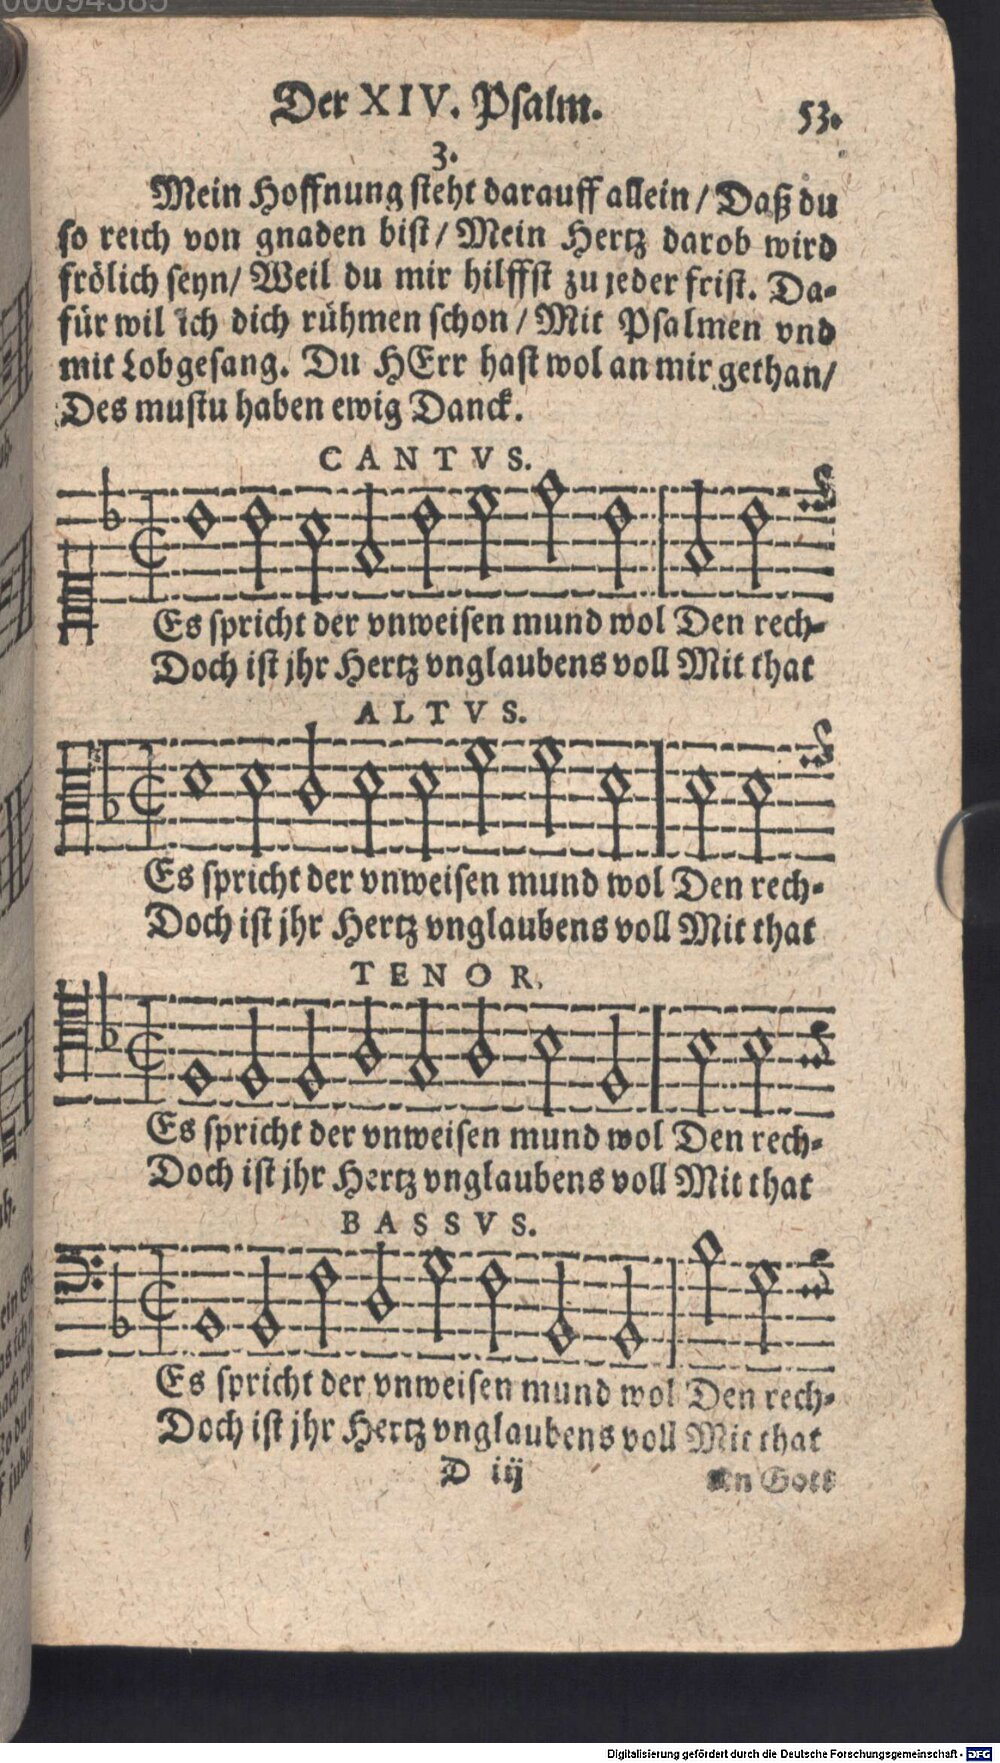 00094385
Der XIV. Psalm. 53.
3.
Mein Hoffnung steht darauff allein / Daß du
so reich von gnaden bist / Mein Hertz darob wird
frölich seyn / Weil du mir hilffst zu jeder frist. Da-
für wil ich dich rühmen schon / Mit Psalmen vnd
mit Lobgesang. Du HErr hast wol an mir gethan /
Des mustu haben ewig Danck.
CANTVS.
Es spricht der vnweisen mund wol Den rech-
Doch ist jhr Hertz vnglaubens voll Mit that
ALTVS.
Es spricht der vnweisen mund wol Den rech-
Doch ist jhr Hertz vnglaubens voll Mit that
TENOR.
Es spricht der vnweisen mund wol Den rech-
Doch ist jhr Hertz vnglaubens voll Mit that
BASSVS.
Es spricht der vnweisen mund wol Den rech-
Doch ist jhr Hertz vnglaubens voll Mit that
D iij An Gott
Digitalisierung gefördert durch die Deutsche Forschungsgemeinschaft - DFG